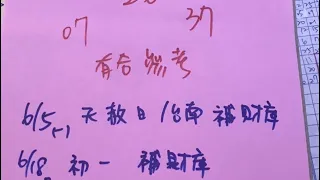 07 37
有合照考
6/5(一) 天赦日/台南補財庫
6/18 初一 補財庫